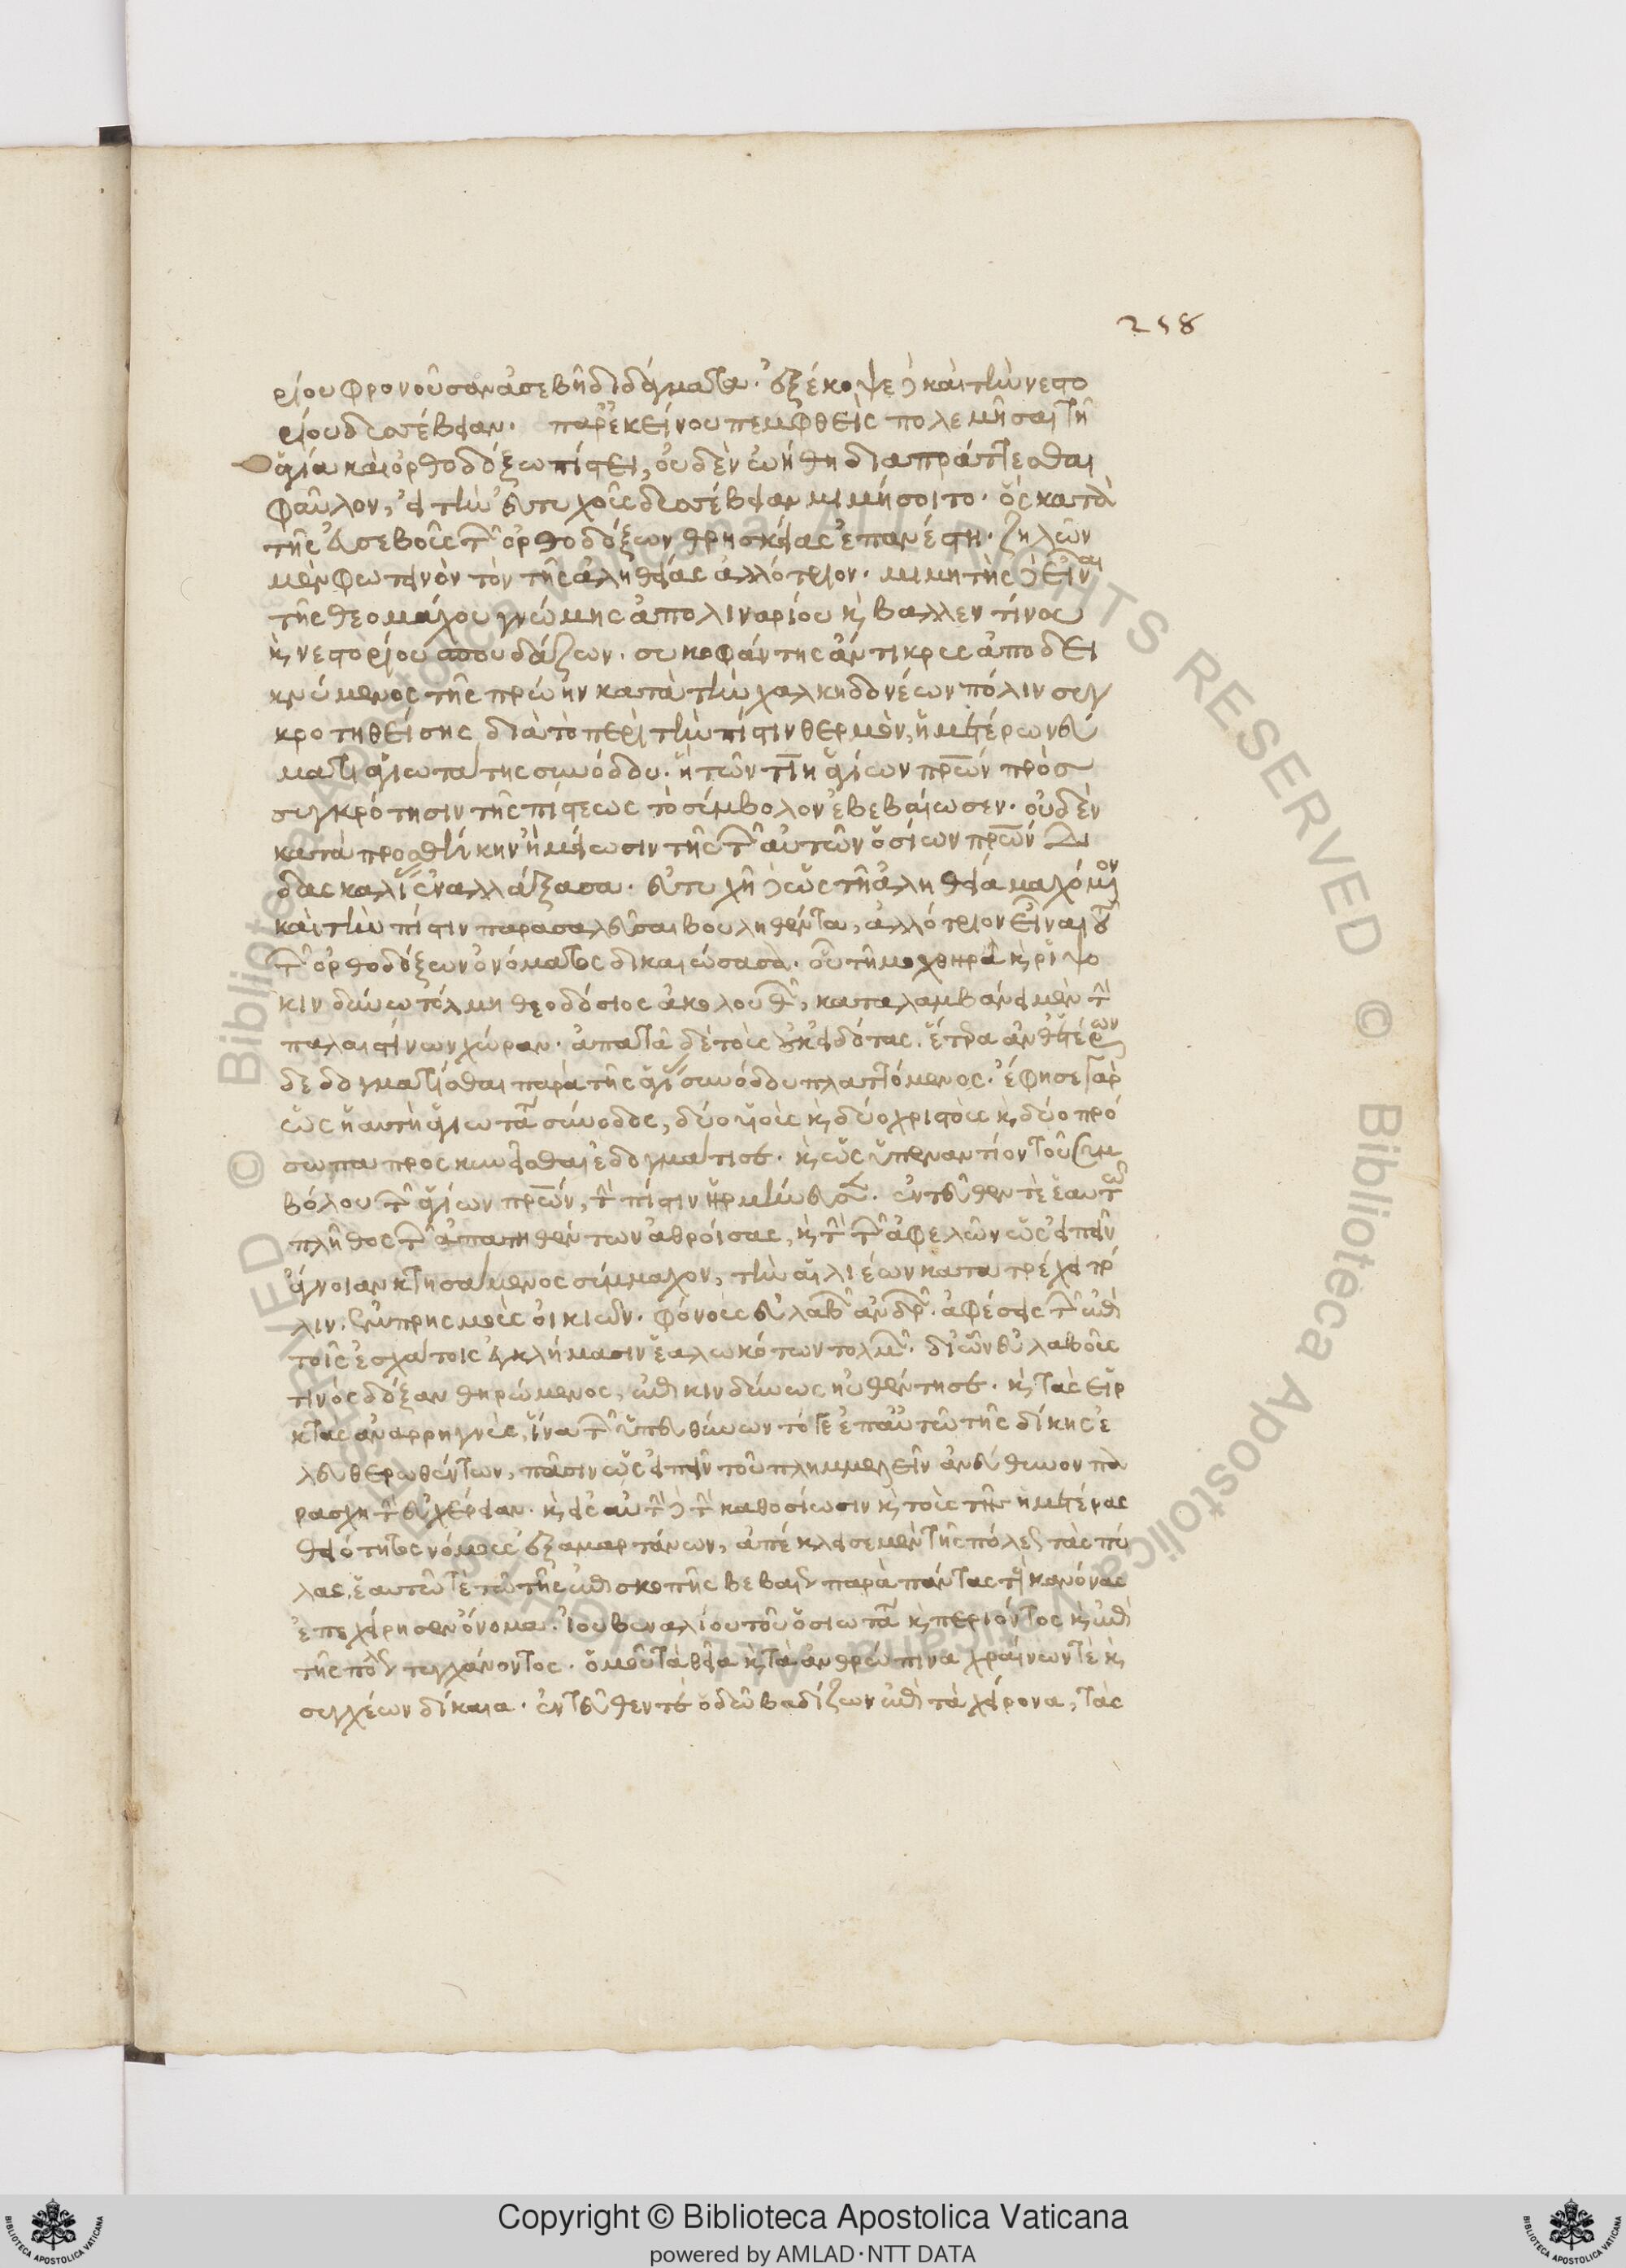 258
ρίου φρονοῦσαν ἀσεβῆ διδάγματα. ἐξέκοψε δὲ καὶ τὴν νεστο
ρίου δυσσέβειαν. παρ' ἐκείνου πεμφθεὶς πολεμῆσαι τῇ
ἁγία καὶ ὀρθοδόξω πίστει, οὐδὲν ὠήθη διαπράττεσθαι
φαῦλον, εἰ τὴν εὐτυχοῦς δυσσέβειαν μιμήσοιτο. ὃς κατὰ
τῆς εὐσεβοῦς τῶν ὀρθοδόξων θρησκείας ἐπανέστη. ζηλῶν
μὲν φωτεινὸν τὸν τῆς ἀληθείας ἀλλότριον. μιμητὴς δὲ εἶναι
τῆς θεομάχου γνώμης ἀπολιναρίου καὶ βαλλεντίνου
καὶ νεστορίου σπουδάζων. συκοφάντης ἄντικρυς ἀποδει
κνύμενος τῆς πρώην κατὰ τὴν χαλκηδονέων πόλιν συγ
κροτηθείσης διὰ τὸ περὶ τὴν πίστιν θερμὸν, ἡμετέρω νεύ
ματι ἁγιωτάτης συνόδου. ἣ τῶν τιη ἁγίων πρων πρὸς
συγκρότησιν τῆς πίστεως τὸ σύμβολον ἐβεβαίωσεν. οὐδὲν
κατὰ προσθήκην ἢ μείωσιν τῆς τῶν αὐτῶν ὁσίων πρων δι
δασκαλίας ἐναλλάξασα. εὐτυχῆ δὲ ὡς τῇ ἀληθεία μαχόμενον
καὶ τὴν πίστιν παρασαλεῦσαι βουληθέντα, ἀλλότριον εἶναι τοῦ
τῶν ὀρθοδόξων ὀνόματος δικαιώσασα. οὗ τῇ μοχθηρᾶ καὶ ῥιψο
κινδύνω τόλμη θεοδόσιος ἀκολουθῶν, καταλαμβάνει μὲν τὴν
παλαιστίνων χώραν. ἀπατᾶ δὲ τοὺς οὐκ εἰδότας. ἕτερα ἀνθ' ἑτέρων
δεδογματίσθαι παρὰ τῆς ἁγίας συνόδου πλαττόμενος. ἔφησε γὰρ
ὡς ἡ αὐτὴ ἁγιωτάτη σύνοδος, δύο υἱοὺς καὶ δύο χριστοὺς καὶ δύο πρό
σωπα προσκυνεῖσθαι ἐδογμάτισε. καὶ ὡς ὑπεναντίον τοῦ συμ
βόλου τῶν ἁγίων πρων, τὴν πίστιν ἡρμήνευσεν. ἐντεῦθεν τὲ ἑαυτῶ
πλῆθος τῶν ἀπατηθέντων ἀθροίσας, καὶ τὴν τῶν ἀφελῶν ὡς εἰπεῖν
ἄγνοιαν κτησάμενος σύμμαχον, τὴν αἰλιέων κατατρέχει πό
λιν. ἐμπρησμοὺς οἰκιῶν. φόνους εὐλαβῶν ἀνδρῶν. ἀφέσεις τῶν ἐπὶ
τοῖς ἐσχάτοις ἐγκλήμασιν ἑαλωκότων τολμῶν. δι' ὧν εὐλαβοῦς
τινὸς δόξαν θηρώμενος, ἐπικινδύνως ηὐθέντησε. καὶ τὰς εἱρ
κτὰς ἀναρρηγνὺς, ἵνα τῶν ὑπευθύνων τότε ἐπ' αὐτῶ τῆς δίκης ἐ
λευθερωθέντων, πᾶσιν ὡς εἰπεῖν τοῦ πλημμελεῖν ἀνεύθυνον πα
ράσχη τὴν εὐχέρειαν. καὶ εἰς αὐτὴν δὲ τὴν καθοσίωσιν καὶ τοὺς τῆς ἡμετέρας
θειότητος νόμους ἐξαμαρτάνων, ἀπέκλεισε μὲν τῆς πόλεως τὰς πύ
λας, ἑαυτῶ τὲ τὸ τῆς ἐπισκοπῆς βεβαιοῦν παρὰ πάντας τοὺς κανόνας
ἐπεχείρησεν ὄνομα. ἰουβεναλίου τοῦ ὁσιωτάτου καὶ περιόντος καὶ ἐπὶ
τῆς πόλεως τυγχάνοντος. ὁμοῦ τὰ θεῖα καὶ τὰ ἀνθρώπινα χραίνων τὲ καὶ
συγχέων δίκαια. ἐντεῦθέν τε ὁδῶ βαδίζων ἐπὶ τὰ χείρονα, τὰς
Copyright © Biblioteca Apostolica Vaticana
powered by AMLAD·NTT DATA